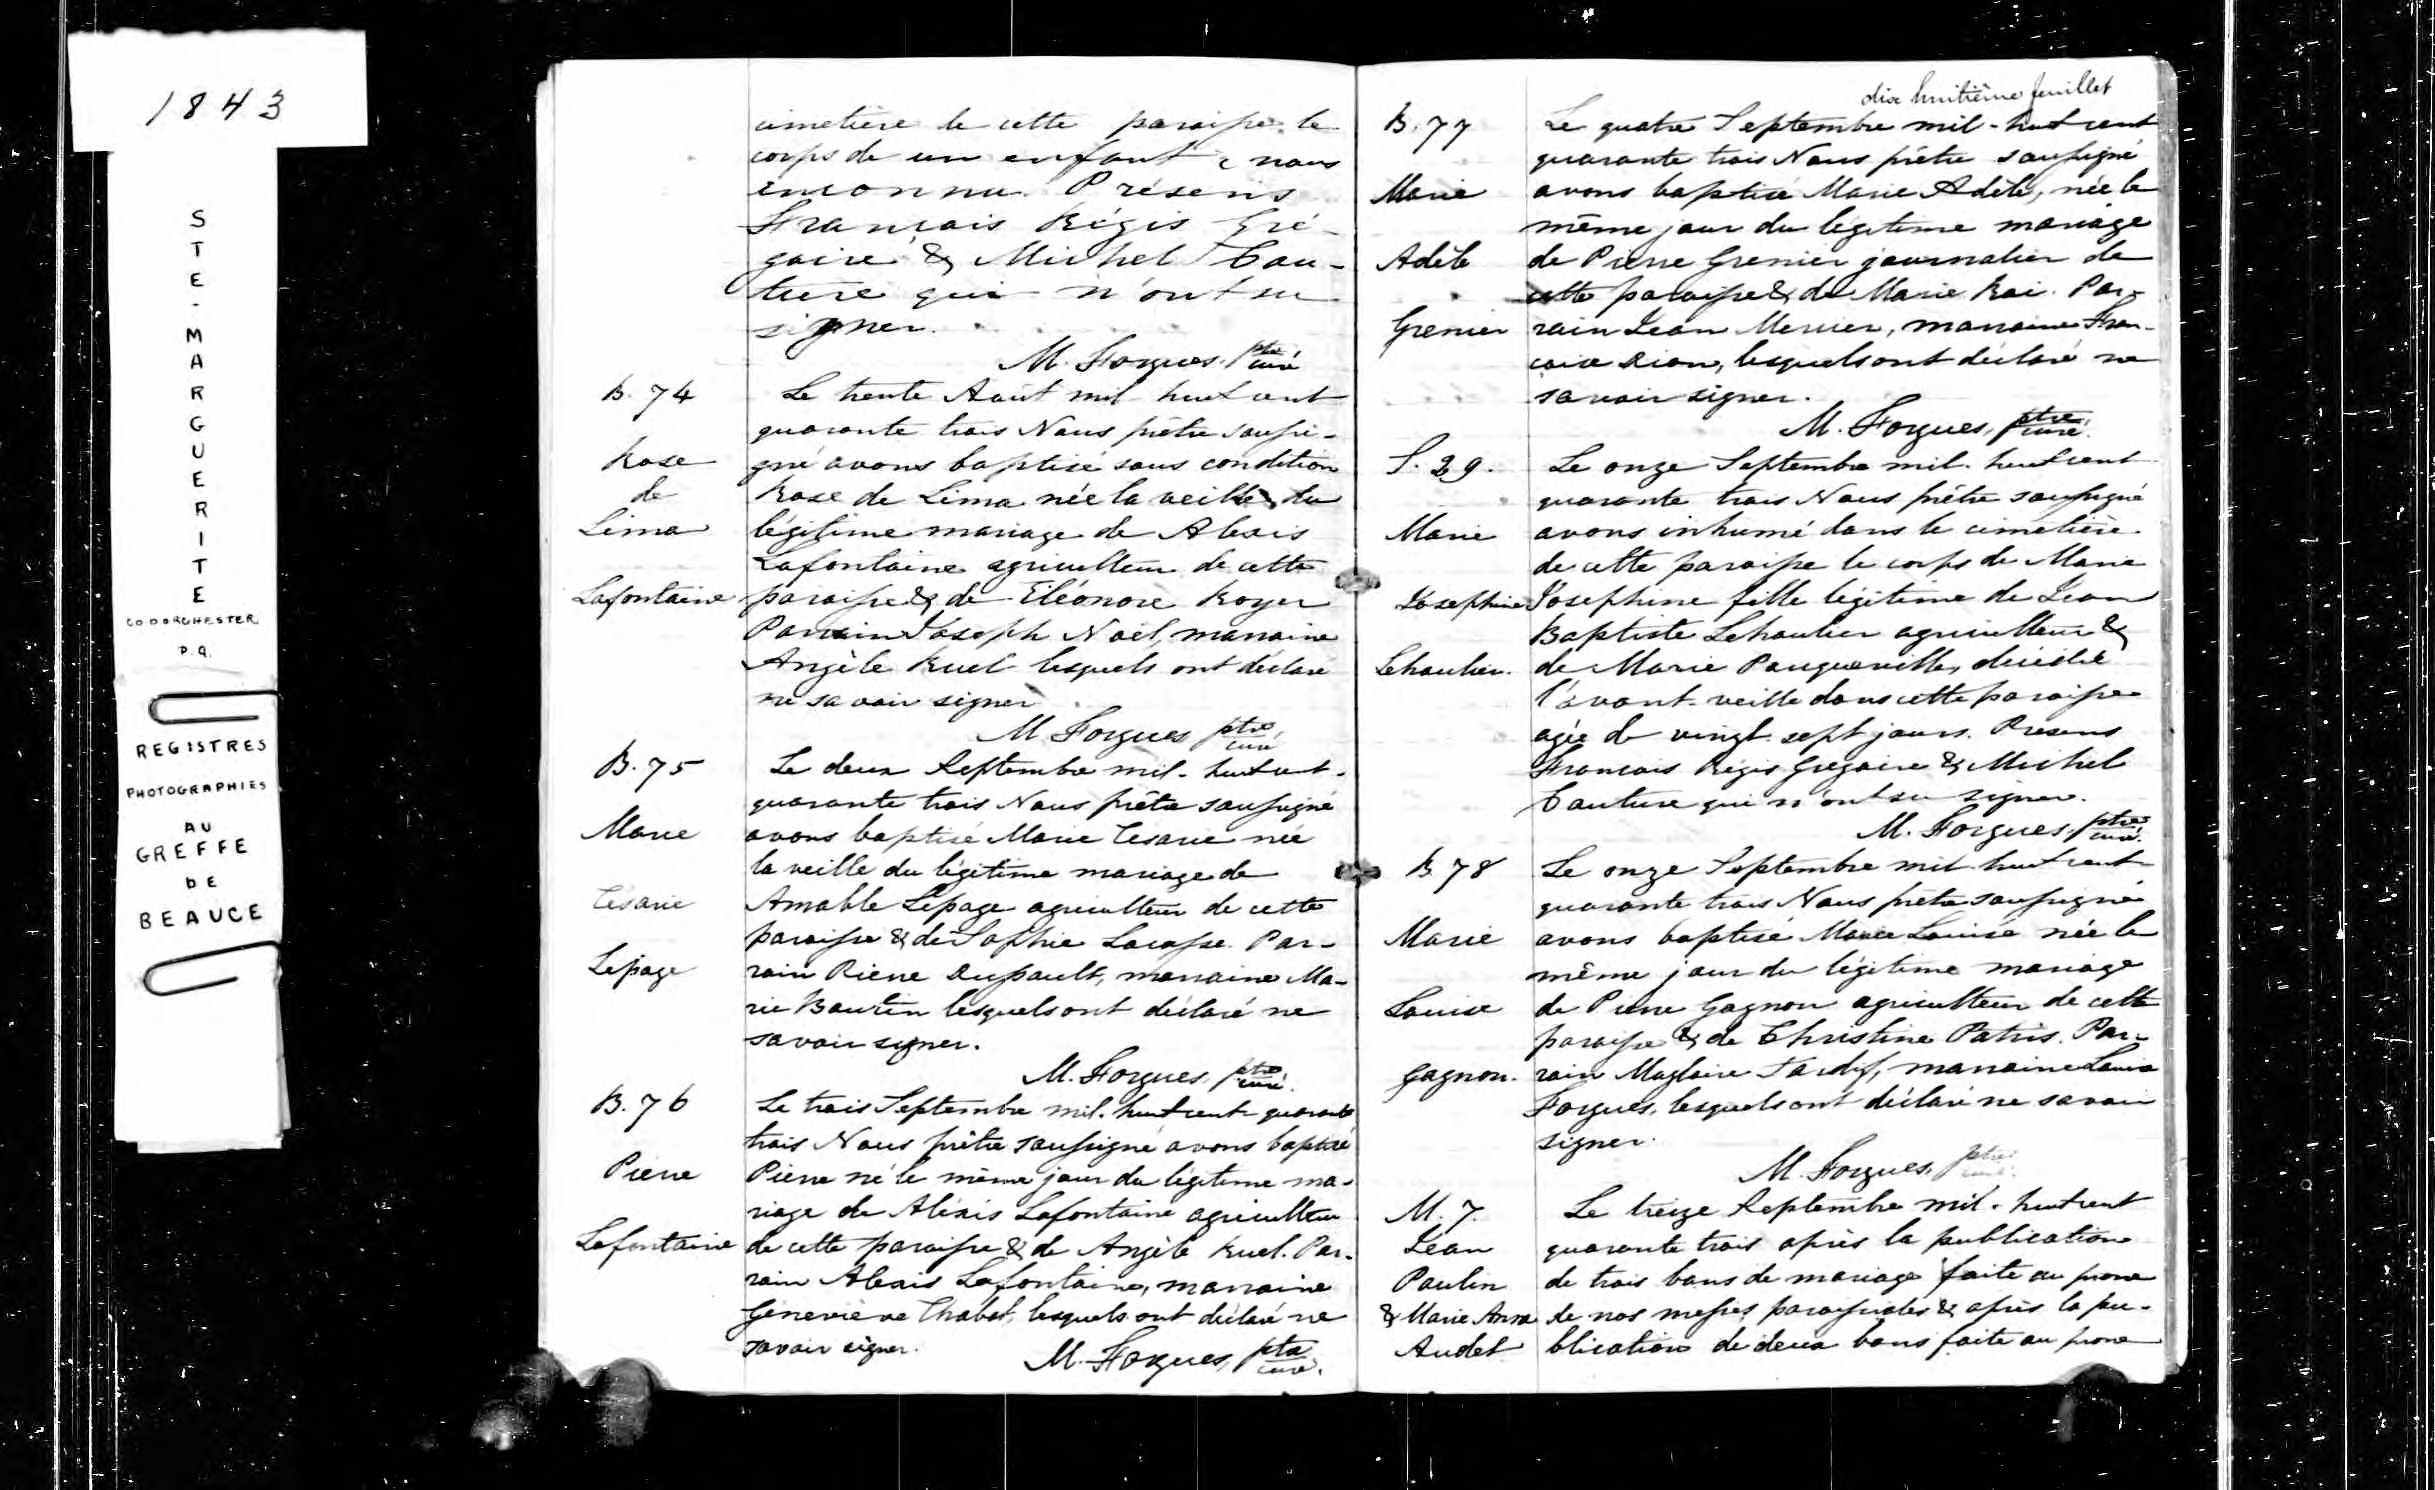 1843
STE-MARGUERITE
CO DORCHESTER
P.Q.
REGISTRES
PHOTOGRAPHIES
AU
GREFFE
DE
BEAUCE
cimetière de cette paroisse le
corps de un enfant à nous
inconnu. Présens
François Régis Gré-
goire & Michel Cou-
ture qui n'ont su
signer.
M. Forgues, ptre curé
B. 74
Rose
de
Lima
Lafontaine
Le trente Août mil huit cent
quarante trois Nous prêtre soussi-
gné avons baptisé sous condition
Rose de Lima née la veille du
légitime mariage de Alexis
Lafontaine agriculteur de cette
paroisse & de Eléonore Royer
Parrain Joseph Noël, marraine
Angèle Ruel lesquels ont déclaré
ne savoir signer
M Forgues ptre curé
B. 75
Marie
Césarie
Lepage
Le deux Septembre mil-huit cent-
quarante trois Nous prêtre soussigné
avons baptisé Marie Césarie née
la veille du légitime mariage de
Amable Lepage agriculteur de cette
paroisse & de Sophie Lacasse. Par-
rain Pierre Dupault, marraine Ma-
rie Boutin lesquels ont déclaré ne
savoir signer.
M. Forgues, ptre curé.
B. 76
Pierre
Lafontaine
Le trois Septembre mil-huit cent quarante
trois Nous prêtre soussigné avons baptisé
Pierre né le même jour du légitime ma-
riage de Alexis Lafontaine agriculteur
de cette paroisse & de Angèle Ruel. Par-
rain Alexis Lafontaine, marraine
Geneviève Chabot, lesquels ont déclaré ne
savoir signer.
M. Forgues, ptre curé.
dix huitième feuillet
B. 77
Marie
Adèle
Grenier
Le quatre Septembre mil-huit cent
quarante trois Nous prêtre soussigné
avons baptisé Marie Adèle, née le
même jour du légitime mariage
de Pierre Grenier journalier de
cette paroisse & de Marie Roi. Par-
rain Jean Mercier, marraine Fran-
coise Dion, lesquels ont déclaré ne
savoir signer.
M. Forgues, ptre curé.
S. 29.
Marie
Josephine
Lehoulier.
Le onze Septembre mil-huit cent
quarante trois Nous prêtre soussigné
avons inhumé dans le cimetière
de cette paroisse le corps de Marie
Josephine fille légitime de Jean
Baptiste Lehoulier agriculteur &
de Marie décédée
l'avant-veille dans cette paroisse
agée de vingt sept jours. Presens
François Régis Grégoire & Michel
Couture qui n'ont su signer.
M. Forgues, ptre curé.
B 78
Marie
Louise
Gagnon.
Le onze Septembre mil-huit cent
quarante trois Nous prêtre soussigné
avons baptisé Marie Louise née le
même jour du légitime mariage
de Pierre Gagnon agriculteur de cette
paroisse & de Christine Patris. Par-
rain Magloire Tardif, marraine Louise
Forgues, lesquels ont déclaré ne savoir
signer.
M. Forgues, ptre curé.
M. 7.
Jean
Paulin
& Marie Anna
Audet
Le treize Septembre mil-huit cent
quarante trois après la publication
de trois bans de mariage faite au prone
de nos messes paroissiales & après la pu-
blication de deux bans faite au prone